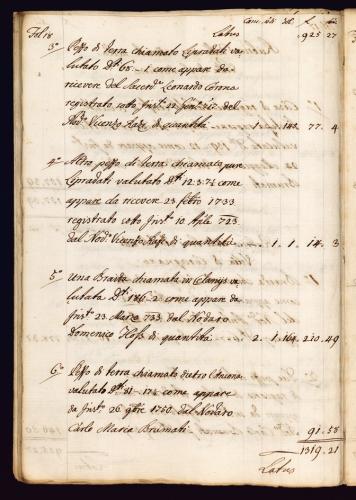 Fol 18 Latus 925 27
3º Pezzo di terra chiamato Gpradeti va=
lutato Dti 68.–1 come appare da
ricevere del Sacerde Leonardo Corona
registrato sotto
Nodº Vicenzo di quantità 1 142 77. 4
4º Altro pezzo di terra chiamata pure
Gpradati valutato Dti 12.3.7½ come
appare da ricevere 23 febro 1733
registrato sotto Instº 10 Aple 723
dal Nodº Vicenzo di quantità 1. 1. 14. 3
5º Una Braida chiamata in va=
lutata Dti 186–2 come appare da
Instº 23 Marzo 733 dal Nodaro
Domenico di quantità 2. 1. 164. 210. 49
6º Pezzo di terra chiamato dietro
valutato Dti 81–17½ come appare
da Instº 26 9bre 1750 dal Nodaro
Carlo Maria Brumati 91. 58
1319. 21
Latus